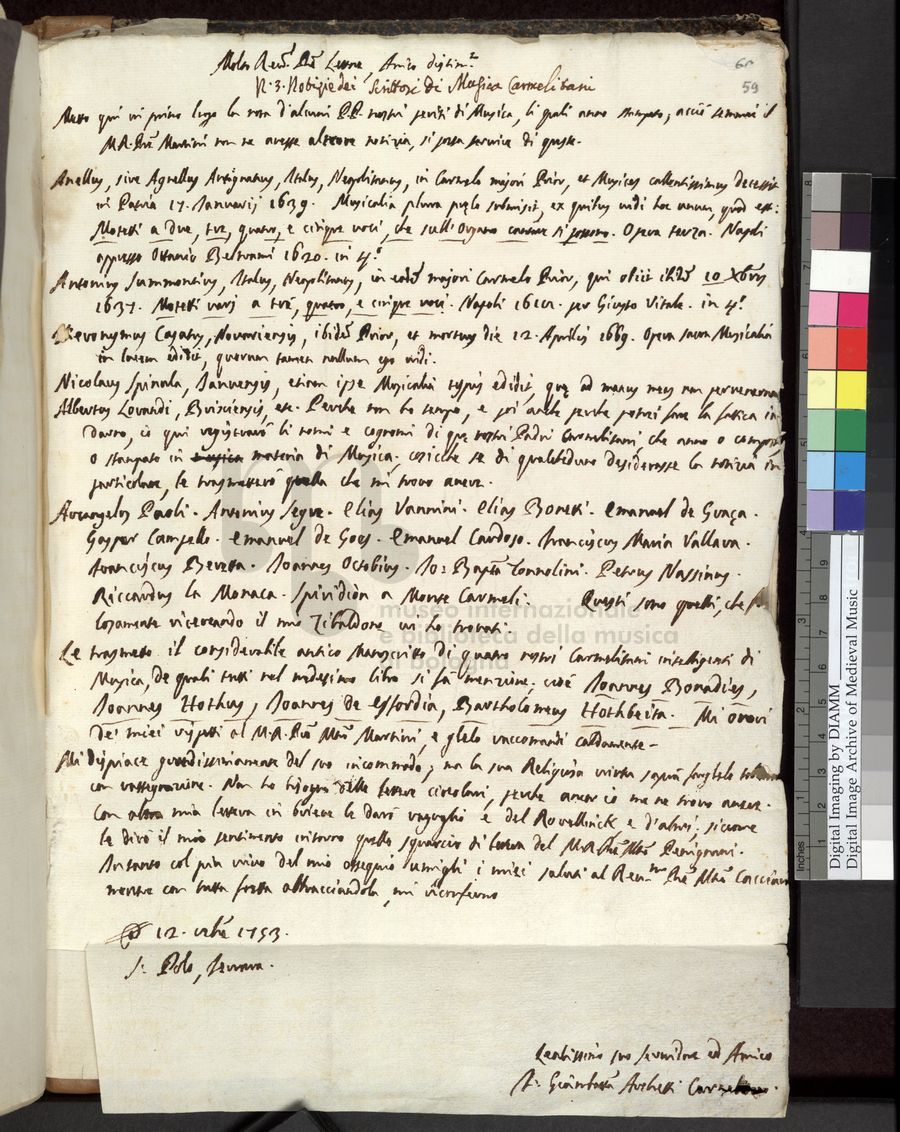 Molto Rev. Leone Amico
60
N. 3. Notizie dei Scrittori di Musica Carmelitani
59
Metto qui in primo luogo la nota d'alcuni PP. nostri periti di Musica, li quali anno stampato; il
M. R. Martini non ne avesse notizia, si possa servire di queste.
Anellus, sive Agnellus Antignanus, Italus, Neapolitanus, in Carmelo majori Prior, et Musicus callentissimus decessit
in Patria 17. Januarij 1639. Musicalia plura submisit, ex quibus vidi hoc unum, quod est:
Motetti a due, tre, quatro, e cinque voci, che sull'Organo cantare si possono. Opera terza. Napoli
appresso Ottavio Beltrami 1620. in 4.
Antonius Summontius, Italus, Neapolitanus, in majori Carmelo Prior, qui obiit 10
1637. Motetti varj a tre, quatro, e cinque voci. Napoli per Giusto Vitale. in 4.
Hieronymus Casatus, Novariensis, Prior, et mortuus die 12. Aprilis 1669. Opera sacra Musicalia
in lucem edidit, quorum tamen nullum ego vidi.
Nicolaus Spinula, Januensis, etiam ipse Musicalia typis edidit, quę ad manus meas non pervenerunt
Albertus, etc. Perche non ho tempo, e poi anche perche potrei fare la fatica in-
darno, io qui li nomi e cognomi di nostri Padri Carmelitani che anno o composto,
o stampato in materia di Musica, cosicche se di qualcheduno desiderasse la notizia in
particolare, le trasmetterò quella che mi trovo avere.
Arcangelus Paoli. Antonius Segue. Elias Vannini. Elias Bonetti. Emanuel de Graça.
Gaspar Campello. Emanuel de Goes. Emanuel Cardoso. Franciscus Maria Vallara.
Franciscus Beretta. Joannes Octobius. Jo: Bapta. Petrus Nassinus.
Riccardus la Monaca. Spiridiòn a Monte Carmeli. Questi sono quelli, che
ricercando il mio Zibaldone vi ho trovati.
museo internazionale
e biblioteca della musica
di bologna
Le trasmetto il considerabile antico Manoscritto di quatro nostri Carmelitani intelligenti di
Musica, de quali tutti nel medesimo libro si fa menzione. cioè Joannes Bonadies,
Joannes Hothus, Joannes de Erfordia, Bartholomeus Hothbeita. Mi onori
dei miei rispetti al M. R. Martini, e glelo raccomandi caldamente.
Mi dispiace grandissimamente del suo incommodo; ma la sua Religiosa virtù
con rassegnazione. Non ho bisogno delle lettere circolari, perche ancor io me ne trovo avere.
Con altra mia lettera in breve le darò ragguaglio e del e d'altri; siccome
le dirò il mio sentimento intorno quello squarcio di lettera del M. R.
Intanto col più vivo del mio ossequio umigli i miei saluti al
mentre con tutta forza abbracciandola, mi riconfermo
12. 1753.
S. Polo, Ferrara.
suo Servidore ed Amico
F. Archetti
Inches
Digital Imaging by DIAMM
Digital Image Archive of Medieval Music